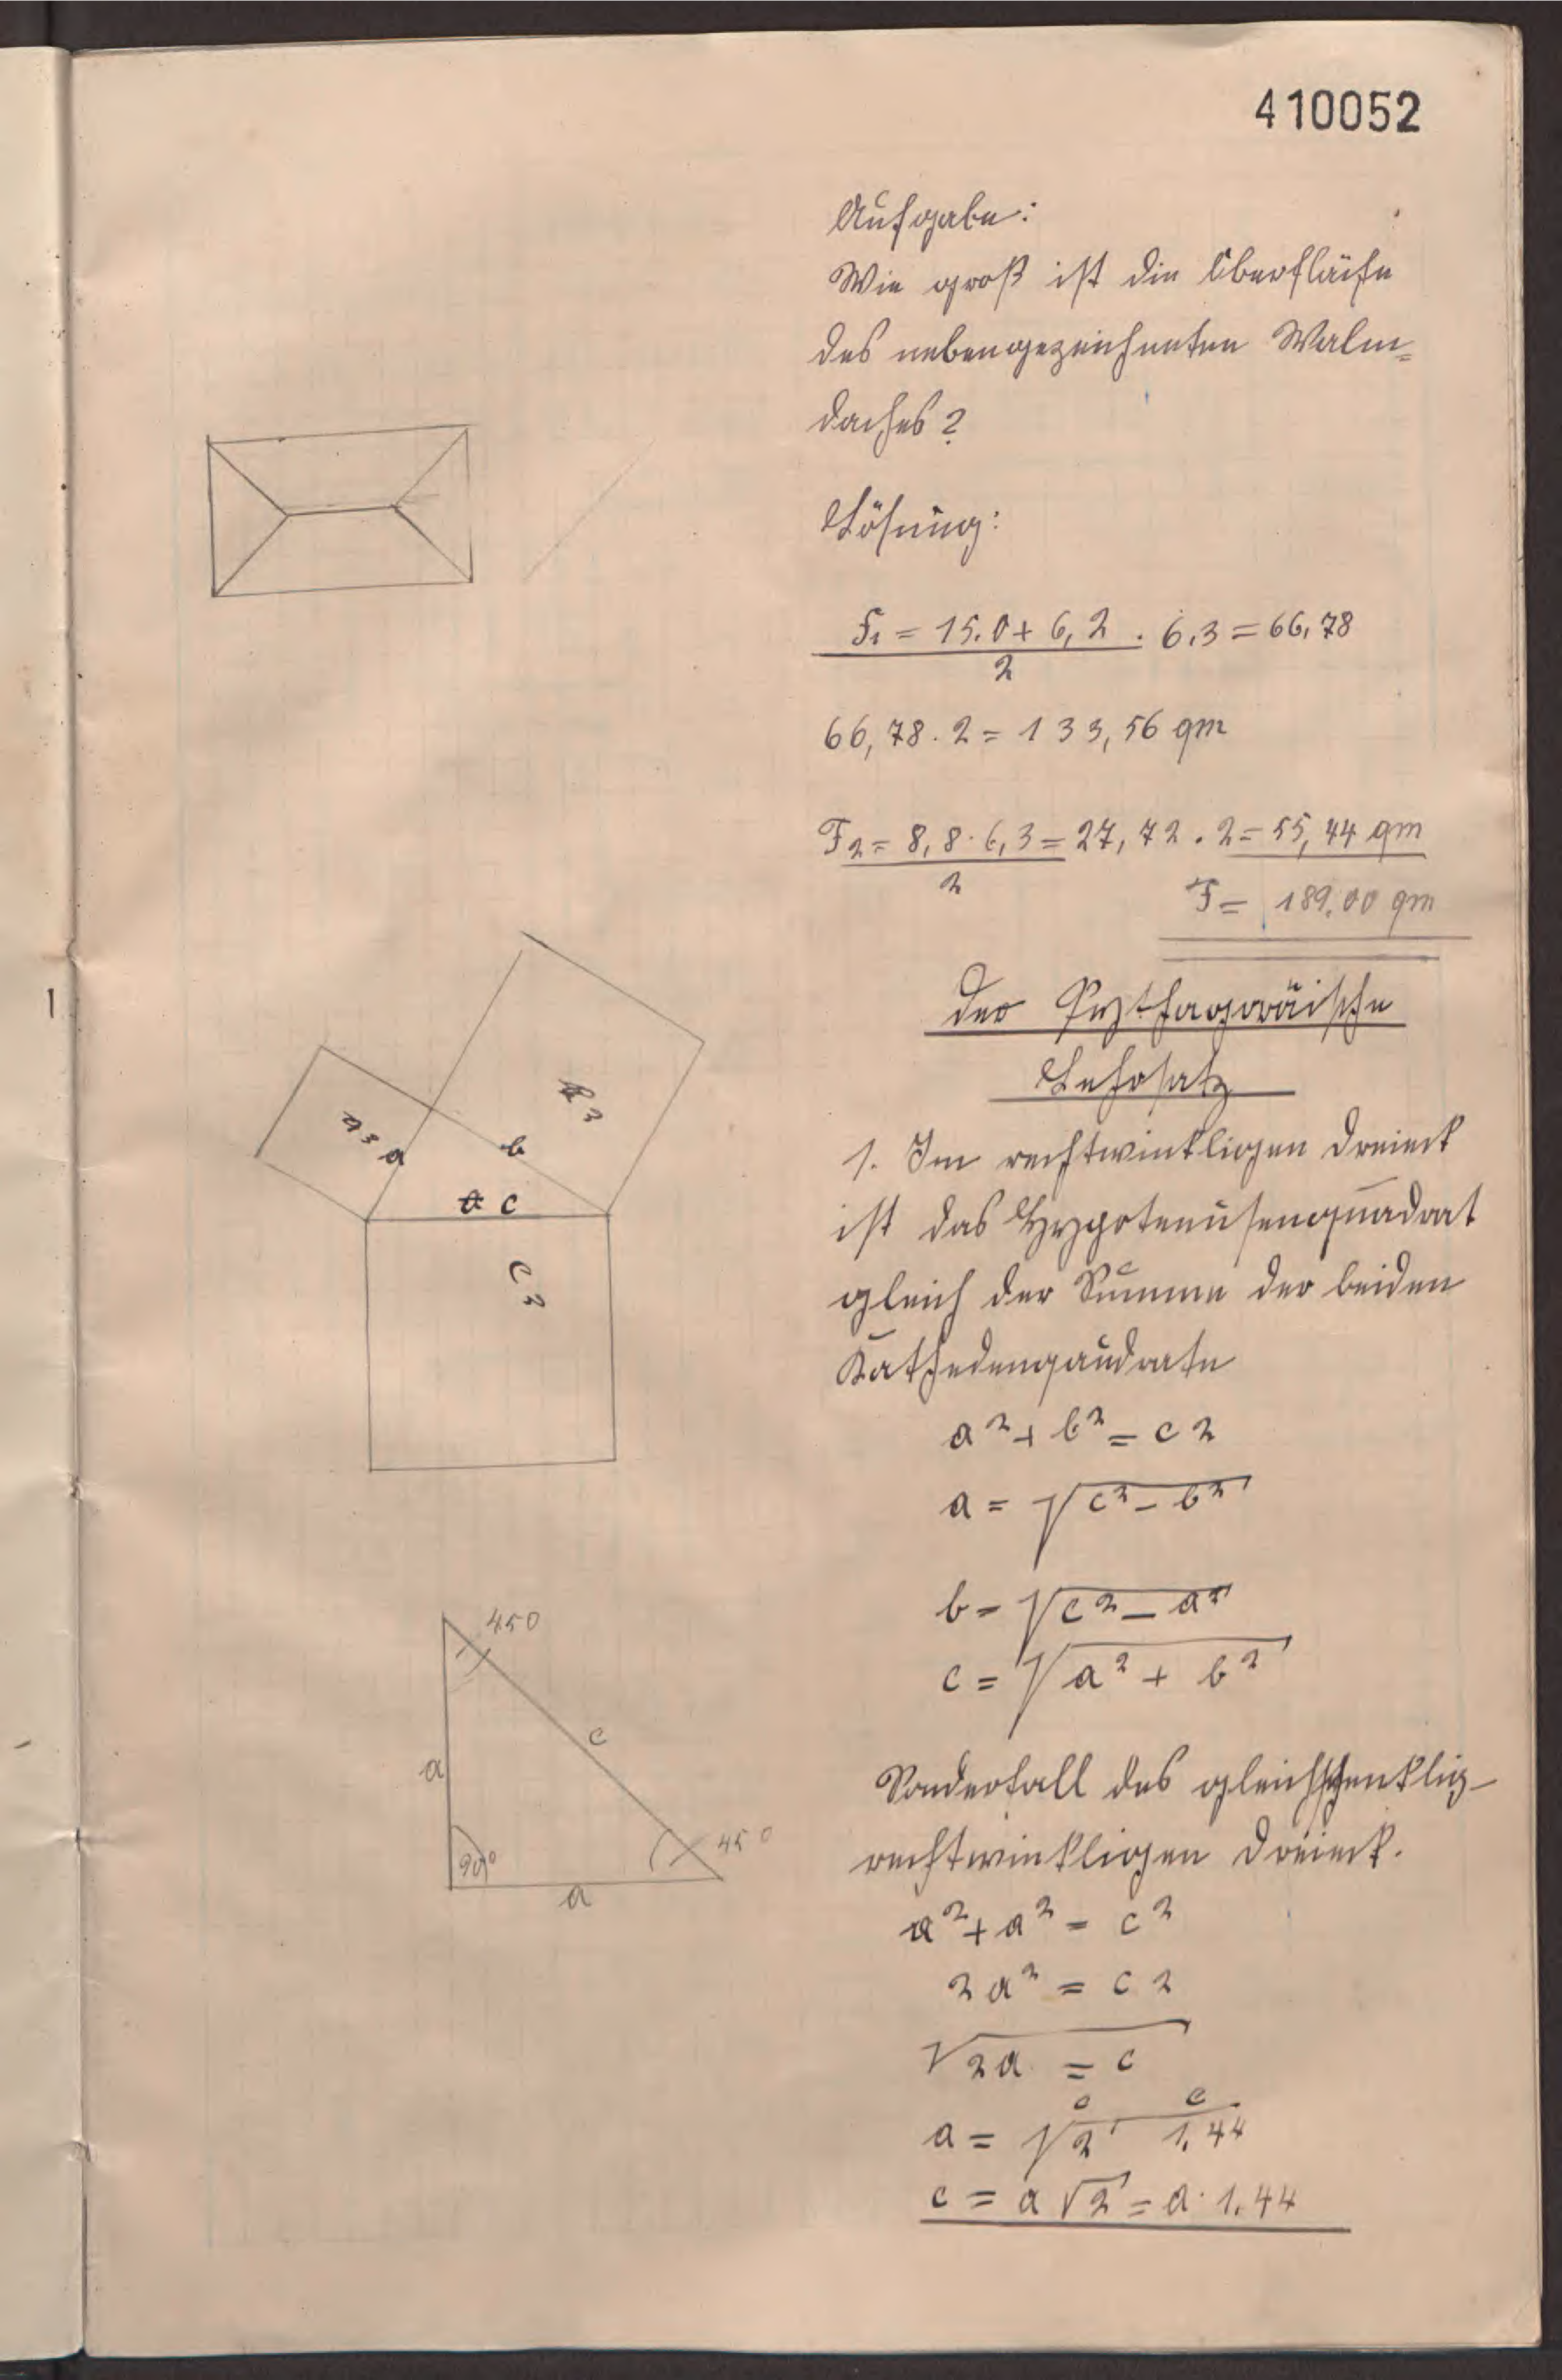 410052
Aufgabe:
Wie groß ist die Oberfläche
des nebengezeichneten Walm=
daches?
Lösung:
F1 = 15.0 + 6,2 . 6.3 = 66,78
2
66,78 . 2 = 133,56 qm
F2 = 8,8 · 6,3 = 27,72 . 2 = 55,44 qm
2
F = 189,00 qm
Der Pythagoräische
Lehrsatz
1. Im rechtwinkligen Dreieck
ist das Hypotenusenquadrat
gleich der Summe der beiden
Kathedenqaudrate
a² + b² = c²
a = √c² - b²
b = √c² - a²
c = √a² + b²
a²
a
b
b²
c
c²
Sonderfall des gleichschenklig-
rechtwinkligen Dreieck.
a² + a² = c²
2a² = c²
√2a = c
c c
a = √2 1,44
c = a √2 = a · 1.44
45°
a
c
90°
45°
a